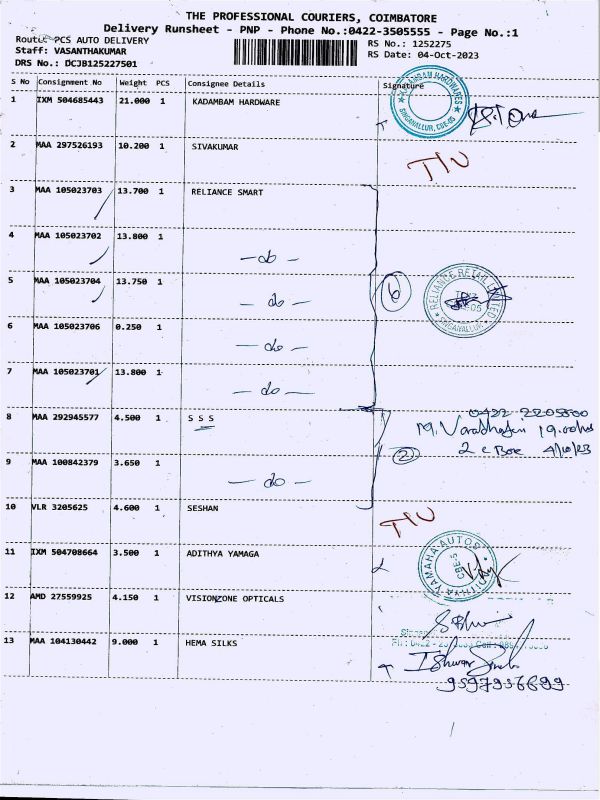 THE PROFESSIONAL COURIERS, COIMBATORE
Delivery Runsheet - PNP - Phone No.:0422-3505555 - Page No.:1
Route: PCS AUTO DELIVERY
RS No.: 1252275
Staff: VASANTHAKUMAR
RS Date: 04-Oct-2023
DRS No.: DCJB125227501
S No Consignment No Weight PCS Consignee Details Signature
1 IXM 504685443 21.000 1 KADAMBAM HARDWARE
KADAMBAM HARDWARES
SINGANALLUR, CBE-05
2 MAA 297526193 10.200 1 SIVAKUMAR
3 MAA 105023703 13.700 1 RELIANCE SMART
4 MAA 105023702 13.800 1
-do-
5 MAA 105023704 13.750 1
-do-
6
RELIANCE RETAIL LIMITED
SINGANALLUR
6 MAA 105023706 0.250 1
-do-
7 MAA 105023701 13.800 1
-do-
8 MAA 292945577 4.500 1 S S S
0422 2205500
19.00hrs
2 c Box 4/10/23
2
9 MAA 100842379 3.650 1
-do-
10 VLR 3205625 4.600 1 SESHAN
11 IXM 504708664 3.500 1 ADITHYA YAMAGA
ADITHYA YAMAHA AUTOS
CBE-5
12 AMD 27559925 4.150 1 VISIONZONE OPTICALS
13 MAA 104130442 9.000 1 HEMA SILKS
9597956699